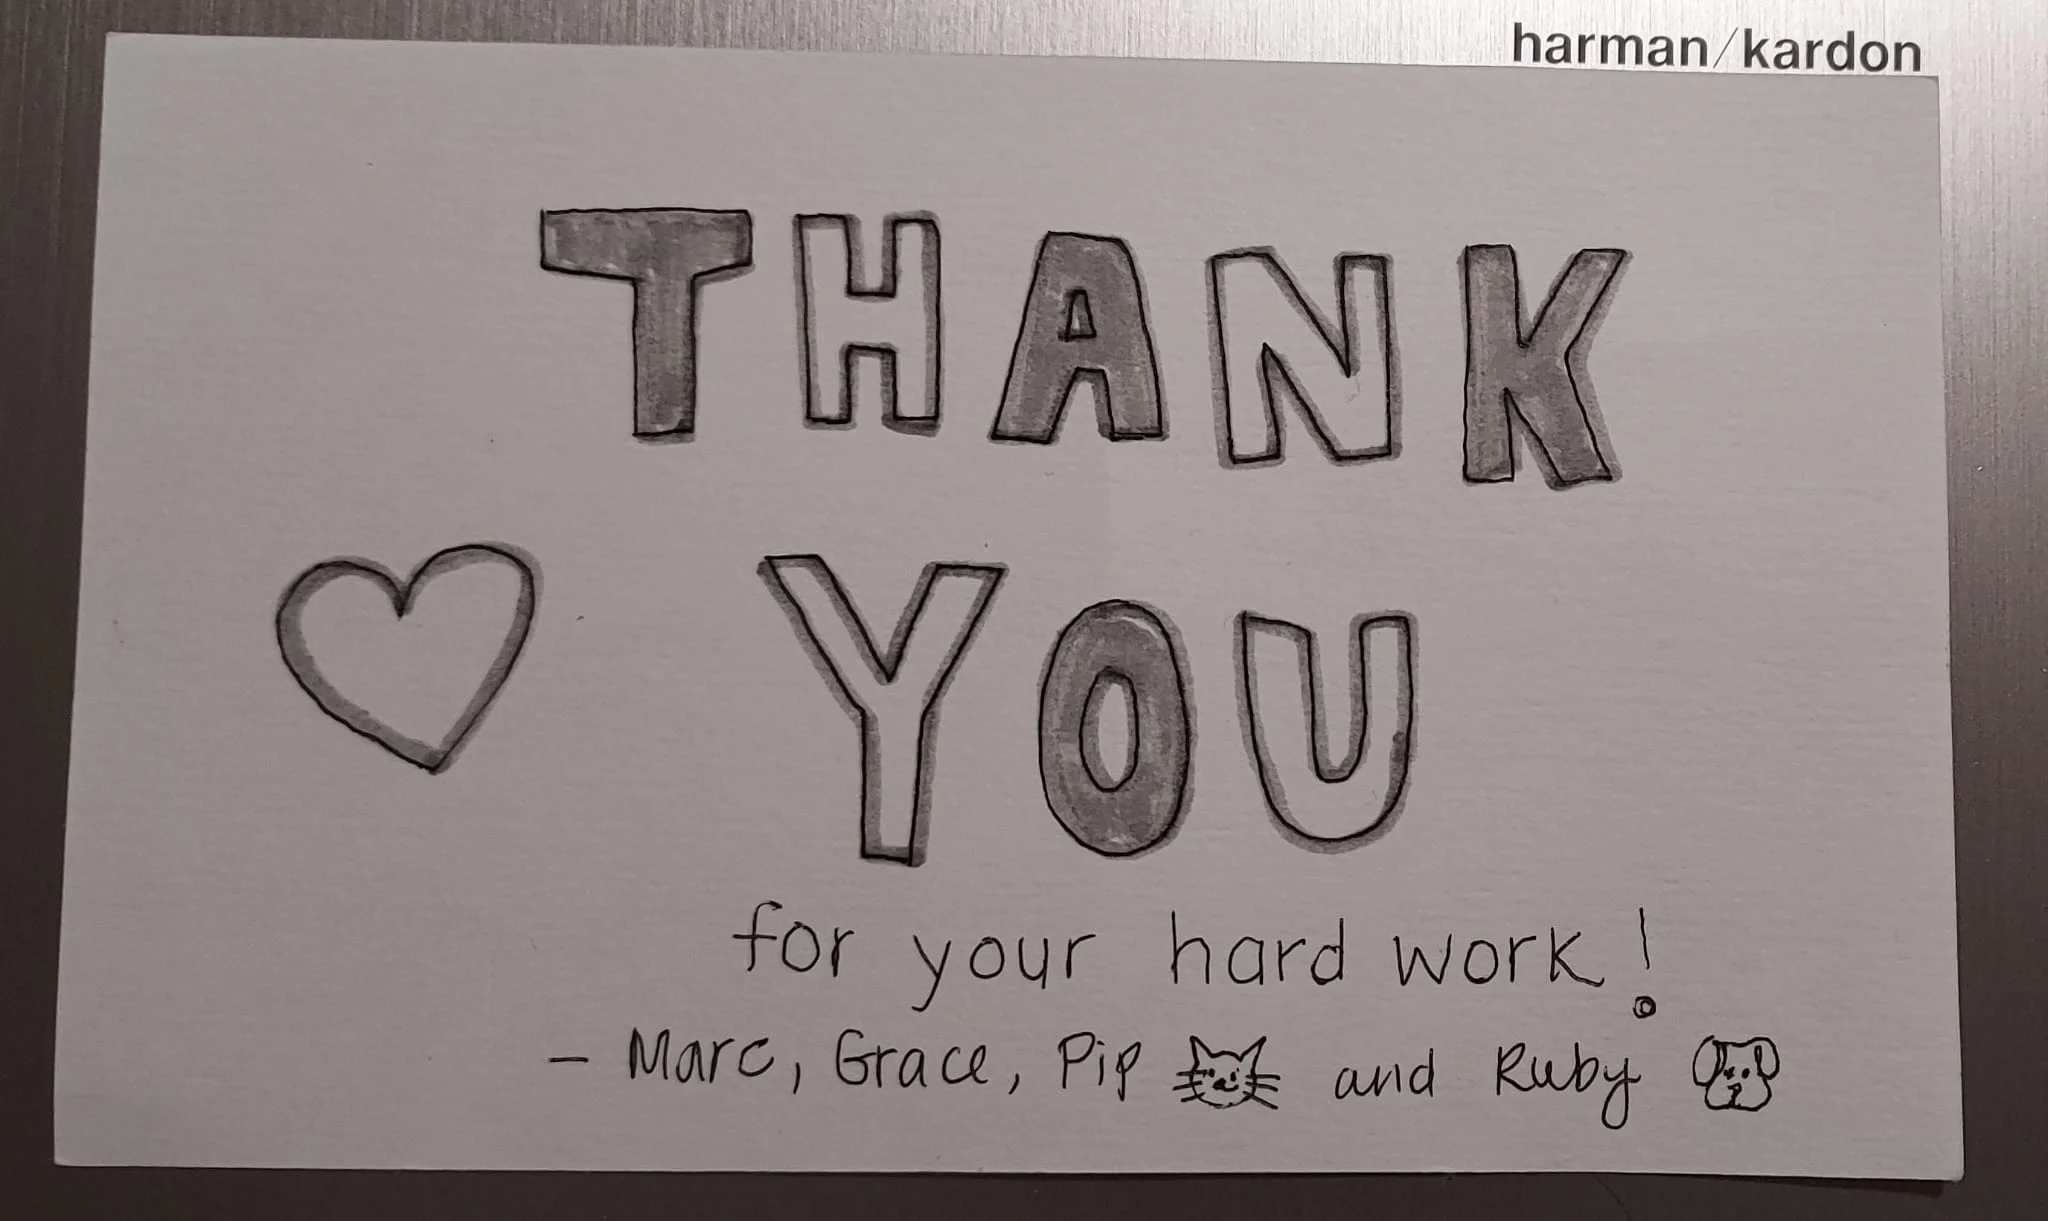 harman/kardon
THANK
YOU
for your hard work!
- Marc, Grace, Pip and Ruby